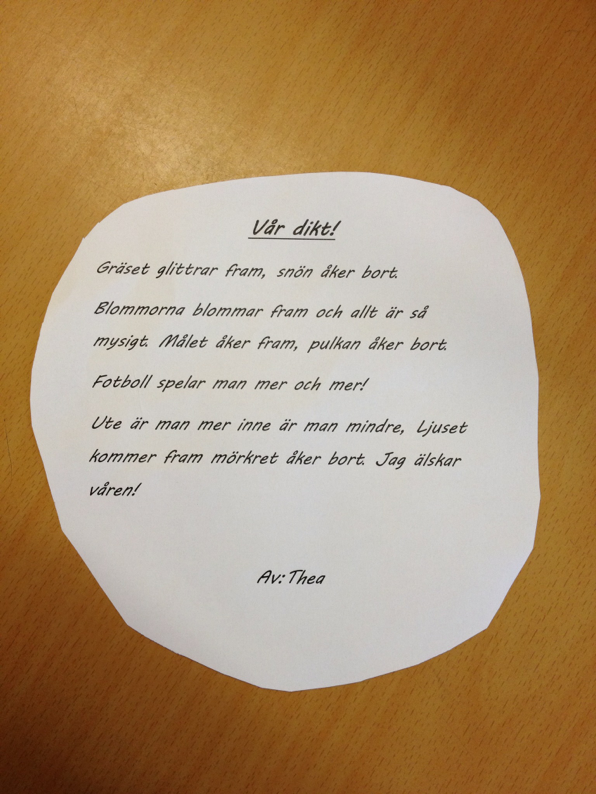 Vår dikt!
Gräset glittrar fram, snön åker bort.
Blommorna blommar fram och allt är så
mysigt. Målet åker fram, pulkan åker bort.
Fotboll spelar man mer och mer!
Ute är man mer inne är man mindre, Ljuset
kommer fram mörkret åker bort. Jag älskar
våren!
Av: Thea